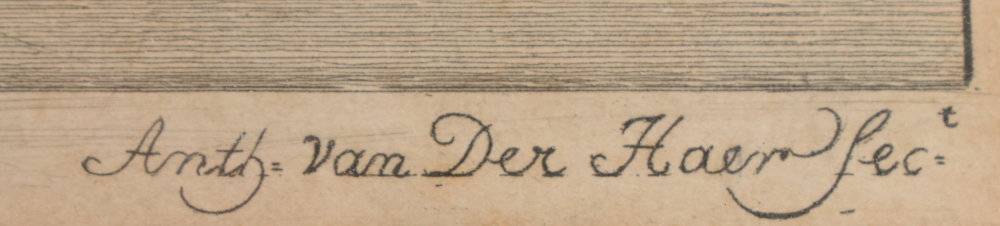 Anth= van Der Haer fec=t